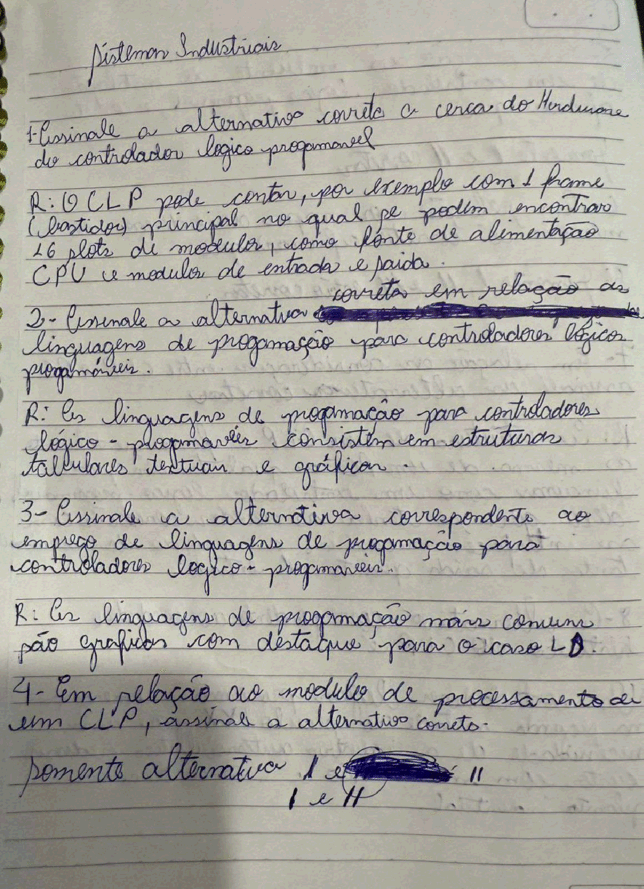 Sistemas Industriais
1-Assinale a alternativa correta a cerca do Hardware
do controlador logico progamavel
R: O CLP pode contar, por exemplo com 1 frame
(bastidor) principal no qual se podem encontrar
16 slots de modulos, como fonte de alimentação
CPU e modulos de entrada e saida.
2- Assinale a alternativa correta em relação as
linguagens de progamação para controladores lógicos
progamáveis.
R: As linguagens de progamação para controladores
lógico-progamavéis consistem em estruturas
tabulares textuais e gráficas.
3- Assinale a alternativa correspondente ao
emprego de linguagens de progamação para
controladores logico-progamaveis.
R: As linguagens de progamação mais comuns
são graficas com destaque para o caso LD.
4- Em relação ao modulo de processamento de
um CLP, assinale a alternativa correta.
somente alternativa I e II
I e II